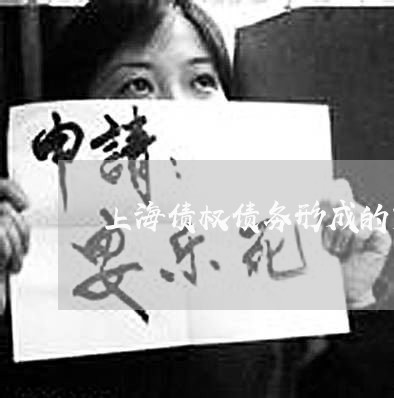 申請：
上海债权债务形成的
安乐死